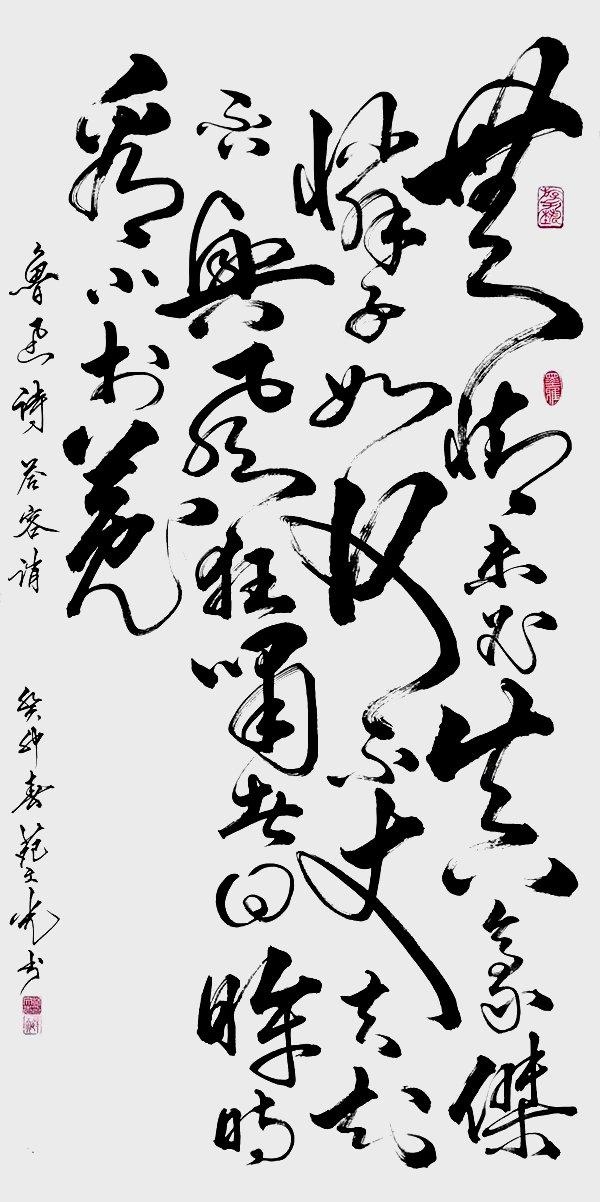 無情未必真豪傑
憐子如何不丈夫知
否興風狂嘯者回眸時
看小於菟
魯迅詩答客誚
癸卯春 光书